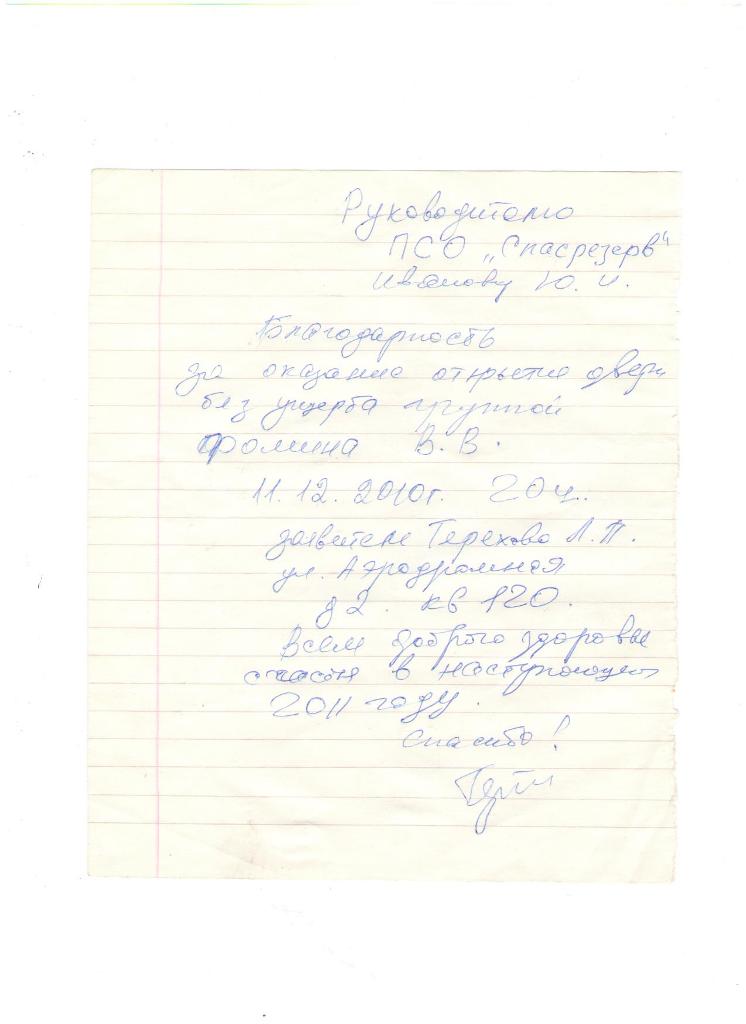 Руководителю
ПСО „Спасрезерв“
Иванову Ю. И.
Благодарность
за оказание открытие двери
без ущерба группой
Фомина В. В.
11. 12. 2010г. 20ч.
заявитель Терехова Л. П.
ул. Аэродромная
д 2. кв 120.
Всем доброго здоровье
счастья в наступающем
2011 году.
Спасибо!